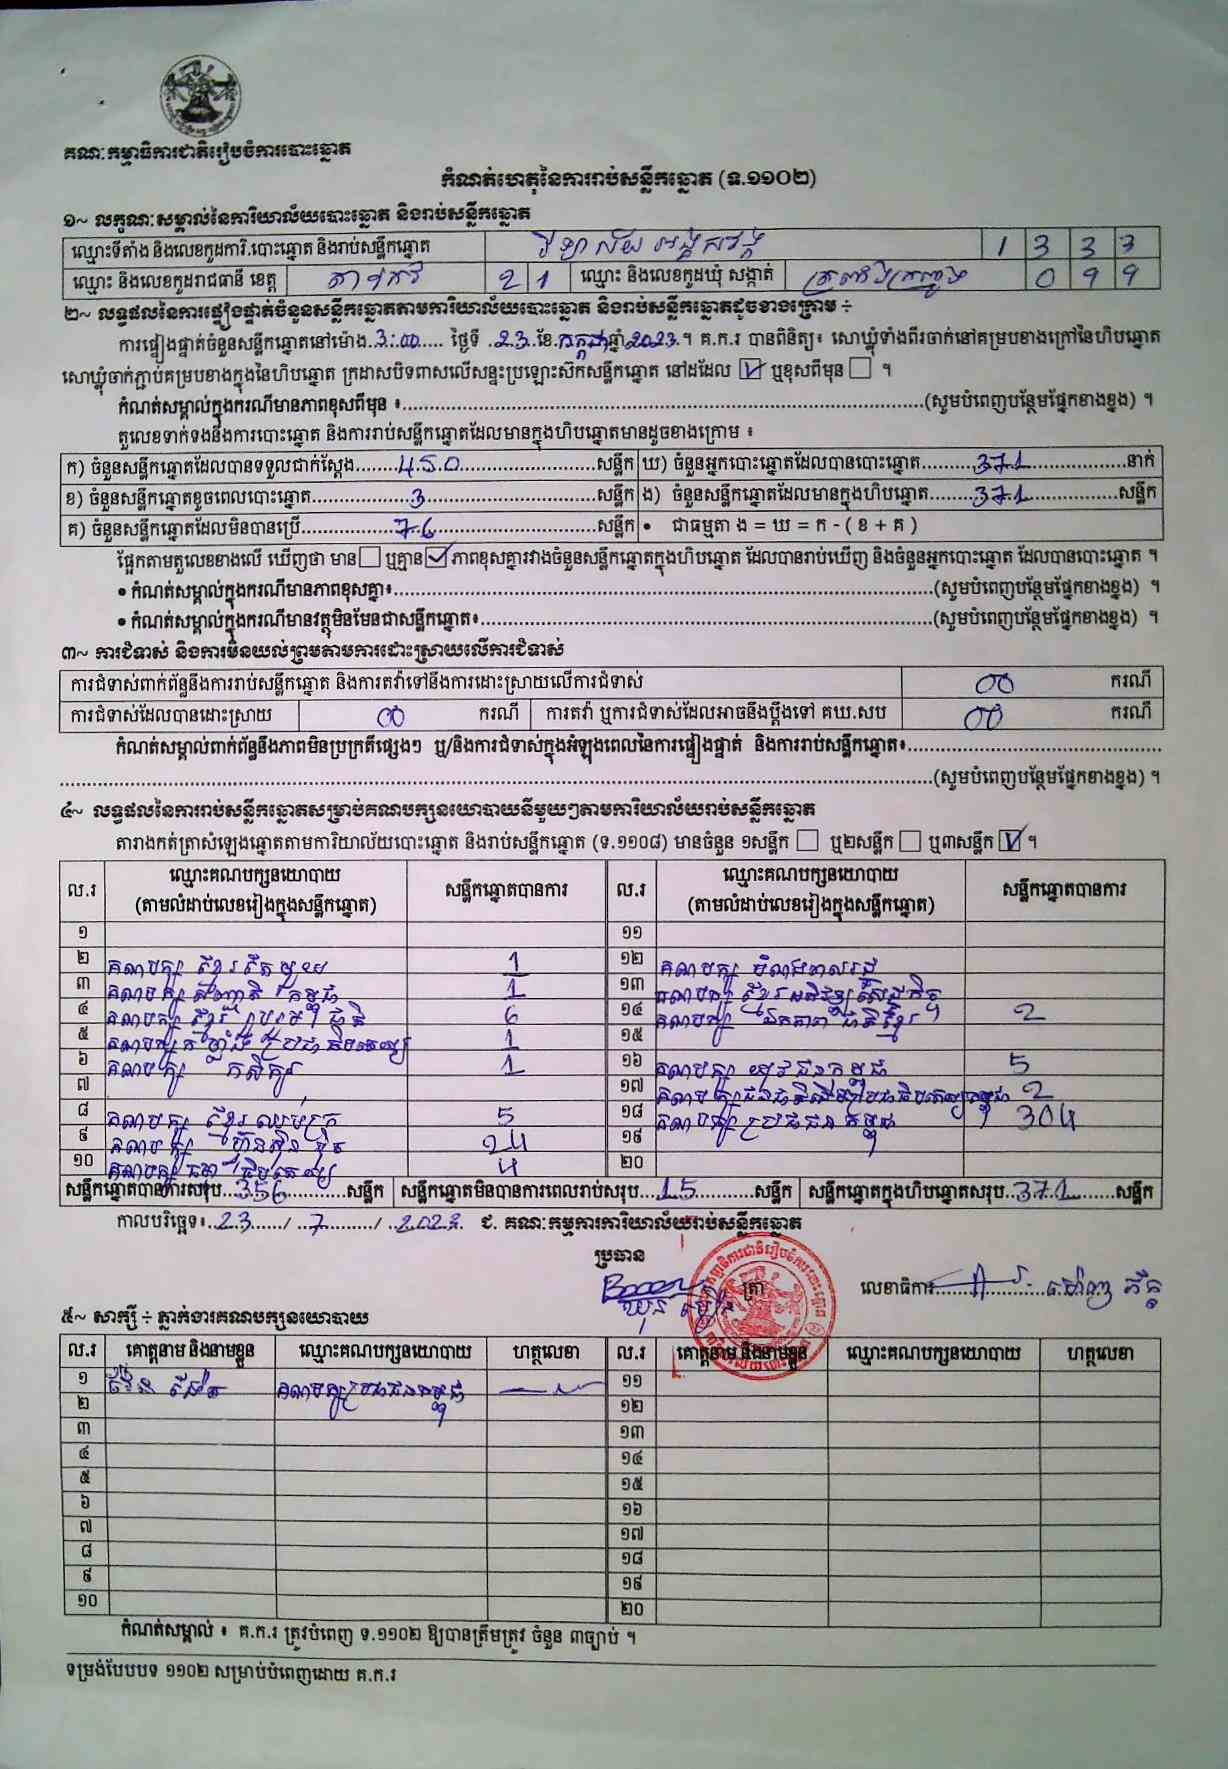 គណៈកម្មាធិការជាតិរៀបចំការបោះឆ្នោត
កំណត់ហេតុនៃការរាប់សន្លឹកឆ្នោត (ទ.១១០២)
១~ លក្ខណៈសម្គាល់នៃការិយាល័យបោះឆ្នោត និងរាប់សន្លឹកឆ្នោត
ឈ្មោះទីតាំង និងលេខកូដការិ.បោះឆ្នោត និងរាប់សន្លឹកឆ្នោត វិទ្យាល័យ 1 3 3 3
ឈ្មោះ និងលេខកូដរាជធានី ខេត្ត តាកែវ 2 1 ឈ្មោះ និងលេខកូដឃុំ សង្កាត់ 0 9 9
២~ លទ្ធផលនៃការផ្ទៀងផ្ទាត់ចំនួនសន្លឹកឆ្នោតតាមការិយាល័យបោះឆ្នោត និងរាប់សន្លឹកឆ្នោតដូចខាងក្រោម ÷
ការផ្ទៀងផ្ទាត់ចំនួនសន្លឹកឆ្នោតនៅម៉ោង.3:00..... ថ្ងៃទី .23.ខែ.កក្កដា.ឆ្នាំ2023.។ គ.ក.រ បានពិនិត្យ៖ សោឃ្លុំទាំងពីរចាក់នៅគម្របខាងក្រៅនៃហិបឆ្នោត
សោឃ្លុំចាក់ភ្ជាប់គម្របខាងក្នុងនៃហិបឆ្នោត ក្រដាសបិទពាសលើសន្ទះប្រឡោះស៊កសន្លឹកឆ្នោត នៅដដែល ☑ ឬខុសពីមុន ☐ ។
កំណត់សម្គាល់ក្នុងករណីមានភាពខុសពីមុន ៖..........(សូមបំពេញបន្ថែមផ្នែកខាងខ្នង) ។
តួលេខទាក់ទងនឹងការបោះឆ្នោត និងការរាប់សន្លឹកឆ្នោតដែលមានក្នុងហិបឆ្នោតមានដូចខាងក្រោម ៖
ក) ចំនួនសន្លឹកឆ្នោតដែលបានទទួលជាក់ស្តែង........450..........សន្លឹក ឃ) ចំនួនអ្នកបោះឆ្នោតដែលបានបោះឆ្នោត..........371..........នាក់
ខ) ចំនួនសន្លឹកឆ្នោតខូចពេលបោះឆ្នោត..........3..........សន្លឹក ង) ចំនួនសន្លឹកឆ្នោតដែលមានក្នុងហិបឆ្នោត..........371..........សន្លឹក
គ) ចំនួនសន្លឹកឆ្នោតដែលមិនបានប្រើ..........76..........សន្លឹក • ជាធម្មតា ង = ឃ = ក - ( ខ + គ )
ផ្អែកតាមតួលេខខាងលើ ឃើញថា មាន ☐ ឬគ្មាន ☑ ភាពខុសគ្នារវាងចំនួនសន្លឹកឆ្នោតក្នុងហិបឆ្នោត ដែលបានរាប់ឃើញ និងចំនួនអ្នកបោះឆ្នោត ដែលបានបោះឆ្នោត ។
• កំណត់សម្គាល់ក្នុងករណីមានភាពខុសគ្នា៖..........(សូមបំពេញបន្ថែមផ្នែកខាងខ្នង) ។
• កំណត់សម្គាល់ក្នុងករណីមានវត្ថុមិនមែនជាសន្លឹកឆ្នោត៖..........(សូមបំពេញបន្ថែមផ្នែកខាងខ្នង) ។
៣~ ការជំទាស់ និងការមិនយល់ព្រមតាមការដោះស្រាយលើការជំទាស់
ការជំទាស់ពាក់ព័ន្ធនឹងការរាប់សន្លឹកឆ្នោត និងការតវ៉ាទៅនឹងការដោះស្រាយលើការជំទាស់ 00 ករណី
ការជំទាស់ដែលបានដោះស្រាយ 00 ករណី ការតវ៉ា ឬការជំទាស់ដែលអាចនឹងប្តឹងទៅ គឃ.សប 00 ករណី
កំណត់សម្គាល់ពាក់ព័ន្ធនឹងភាពមិនប្រក្រតីផ្សេងៗ ឬ/និងការជំទាស់ក្នុងអំឡុងពេលនៃការផ្ទៀងផ្ទាត់ និងការរាប់សន្លឹកឆ្នោត៖..........
..........(សូមបំពេញបន្ថែមផ្នែកខាងខ្នង) ។
៤~ លទ្ធផលនៃការរាប់សន្លឹកឆ្នោតសម្រាប់គណបក្សនយោបាយនីមួយៗតាមការិយាល័យរាប់សន្លឹកឆ្នោត
តារាងកត់ត្រាសំឡេងឆ្នោតតាមការិយាល័យបោះឆ្នោត និងរាប់សន្លឹកឆ្នោត (ទ.១១០៨) មានចំនួន ១សន្លឹក ☐ ឬ២សន្លឹក ☐ ឬ៣សន្លឹក ☑ ។
ល.រ ឈ្មោះគណបក្សនយោបាយ (តាមលំដាប់លេខរៀងក្នុងសន្លឹកឆ្នោត) សន្លឹកឆ្នោតបានការ ល.រ ឈ្មោះគណបក្សនយោបាយ (តាមលំដាប់លេខរៀងក្នុងសន្លឹកឆ្នោត) សន្លឹកឆ្នោតបានការ
១ ១១
២ គណបក្ស ខ្មែរតែមួយ 1 ១២ គណបក្ស
៣ គណបក្ស កម្ពុជា 1 ១៣ គណបក្ស ខ្មែរអភិវឌ្ឍន៍សេដ្ឋកិច្ច
៤ គណបក្ស ខ្មែរ រួបរួមជាតិ 6 ១៤ គណបក្ស ឯកភាពជាតិខ្មែរ 2
៥ គណបក្សកម្លាំងប្រជាធិបតេយ្យ 1 ១៥
៦ គណបក្ស កសិករ 1 ១៦ គណបក្ស យុវជនកម្ពុជា 5
៧ ១៧ 2
៨ គណបក្ស ខ្មែរឈប់ក្រ 5 ១៨ គណបក្ស ប្រជាជនកម្ពុជា 304
៩ គណបក្ស ហ៊្វុនស៊ិនប៉ិច 24 ១៩
១០ គណបក្ស ធិបតេយ្យ 4 ២០
សន្លឹកឆ្នោតបានការសរុប...356..........សន្លឹក សន្លឹកឆ្នោតមិនបានការពេលរាប់សរុប...15..........សន្លឹក សន្លឹកឆ្នោតក្នុងហិបឆ្នោតសរុប...371........សន្លឹក
កាលបរិច្ឆេទ៖..23....../ ..7......../ ..2023. ជ. គណៈកម្មការការិយាល័យរាប់សន្លឹកឆ្នោត
ប្រធាន ត្រា លេខាធិការ
៥~ សាក្សី ÷ ភ្នាក់ងារគណបក្សនយោបាយ
ល.រ គោត្តនាម និងនាមខ្លួន ឈ្មោះគណបក្សនយោបាយ ហត្ថលេខា ល.រ គោត្តនាម និងនាមខ្លួន ឈ្មោះគណបក្សនយោបាយ ហត្ថលេខា
១ គណបក្សប្រជាជនកម្ពុជា ១១
២ ១២
៣ ១៣
៤ ១៤
៥ ១៥
៦ ១៦
៧ ១៧
៨ ១៨
៩ ១៩
១០ ២០
កំណត់សម្គាល់ ៖ គ.ក.រ ត្រូវបំពេញ ទ.១១០២ ឱ្យបានត្រឹមត្រូវ ចំនួន ៣ច្បាប់ ។
ទម្រង់បែបបទ ១១០២ សម្រាប់បំពេញដោយ គ.ក.រ